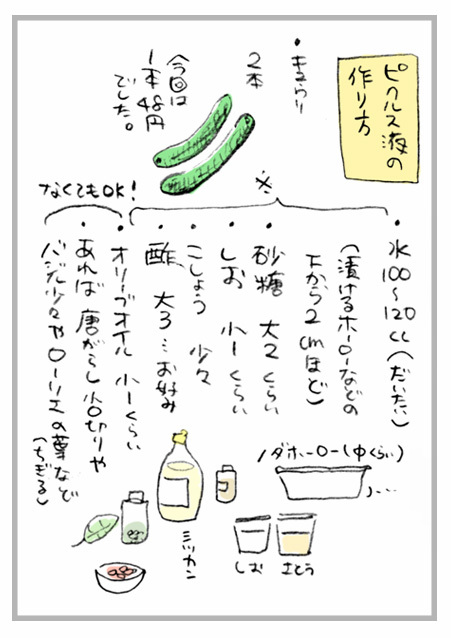 ピクルス液の
作り方
・きゅうり
2本
今回は
1本48円
でした。
※
・水100〜120cc(だいたい)
(漬けるホーローなどの
下から2cmほど)
・砂糖 大2くらい
・しお 小1くらい
・こしょう 少々
・酢 大3…お好み
なくてもOK!
・オリーブオイル 小1くらい
・あれば 唐がらし小口切りや
バジル少々やローリエの葉など
(ちぎる)
ノダホーロー(中くらい)
ミツカン
しお
さとう